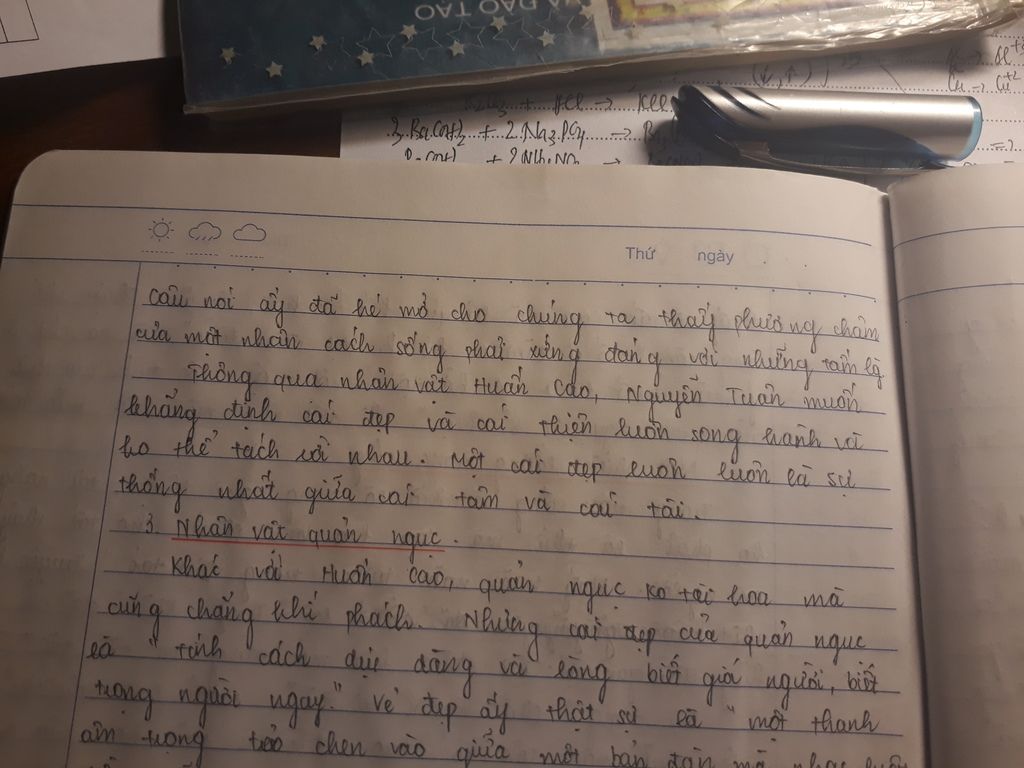 VÀ ĐÀO TẠO
3. Ba(OH)2 + 2.Na3PO4 →
Thứ ngày
câu nói ấy đã hé mở cho chúng ta thấy phương châm
của một nhân cách sống phải xứng đáng với những tấm lg
Thông qua nhân vật Huấn Cao, Nguyễn Tuân muốn
khẳng định cái đẹp và cái thiện luôn song hành vs
ko thể tách rời nhau. Một cái đẹp luôn luôn là sự
thống nhất giữa cái tâm và cái tài.
3. Nhân vật quản ngục.
Khác với Huấn Cao, quản ngục ko tài hoa mà
cũng chẳng khí phách. Nhưng cái đẹp của quản ngục
là "tính cách dịu dàng và lòng biết giá người, biết
trọng người ngay." Vẻ đẹp ấy thật sự là "một thanh
âm trong trẻo chen vào giữa một bản đàn mà nhạc luật